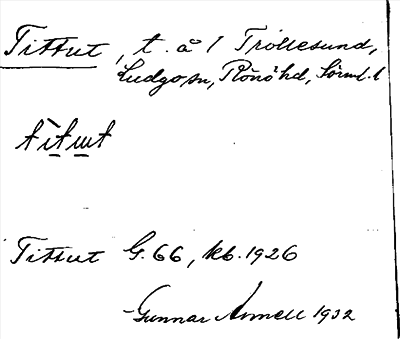 Tittut, t. å / Trollesund,
Ludgo sn, Rönö hd, Sörml. l
Tittut G. 66, kb. 1926
Gunnar Annell 1932